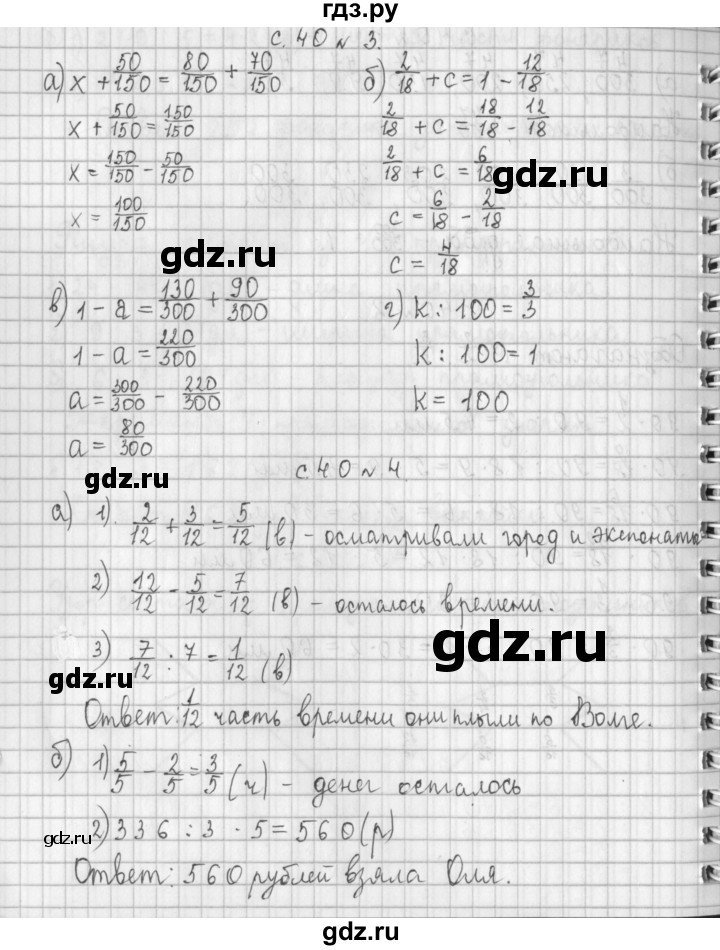 гдз.ру
с. 40 № 3.
а) x + 50/150 = 80/150 + 70/150
x + 50/150 = 150/150
x = 150/150 - 50/150
x = 100/150
б) 2/18 + c = 1 - 12/18
2/18 + c = 18/18 - 12/18
2/18 + c = 6/18
c = 6/18 - 2/18
c = 4/18
gdz.ru
gdz.ru
в) 1 - a = 130/300 + 90/300
1 - a = 220/300
a = 300/300 - 220/300
a = 80/300
г) k : 100 = 3/3
k : 100 = 1
k = 100
gdz.ru
с. 40 № 4.
а) 1). 2/12 + 3/12 = 5/12 (в) - осматривали город и экспонаты
2) 12/12 - 5/12 = 7/12 (в) - осталось времени.
3) 7/12 : 7 = 1/12 (в)
gdz.ru
gdz.ru
Ответ: 1/12 часть времени они плыли по Волге.
б) 1) 5/5 - 2/5 = 3/5 (ч) - денег осталось
2) 336 : 3 · 5 = 560 (р)
gdz.ru
gdz.ru
Ответ: 560 рублей взяла Оля.
gdz.ru
gdz.ru